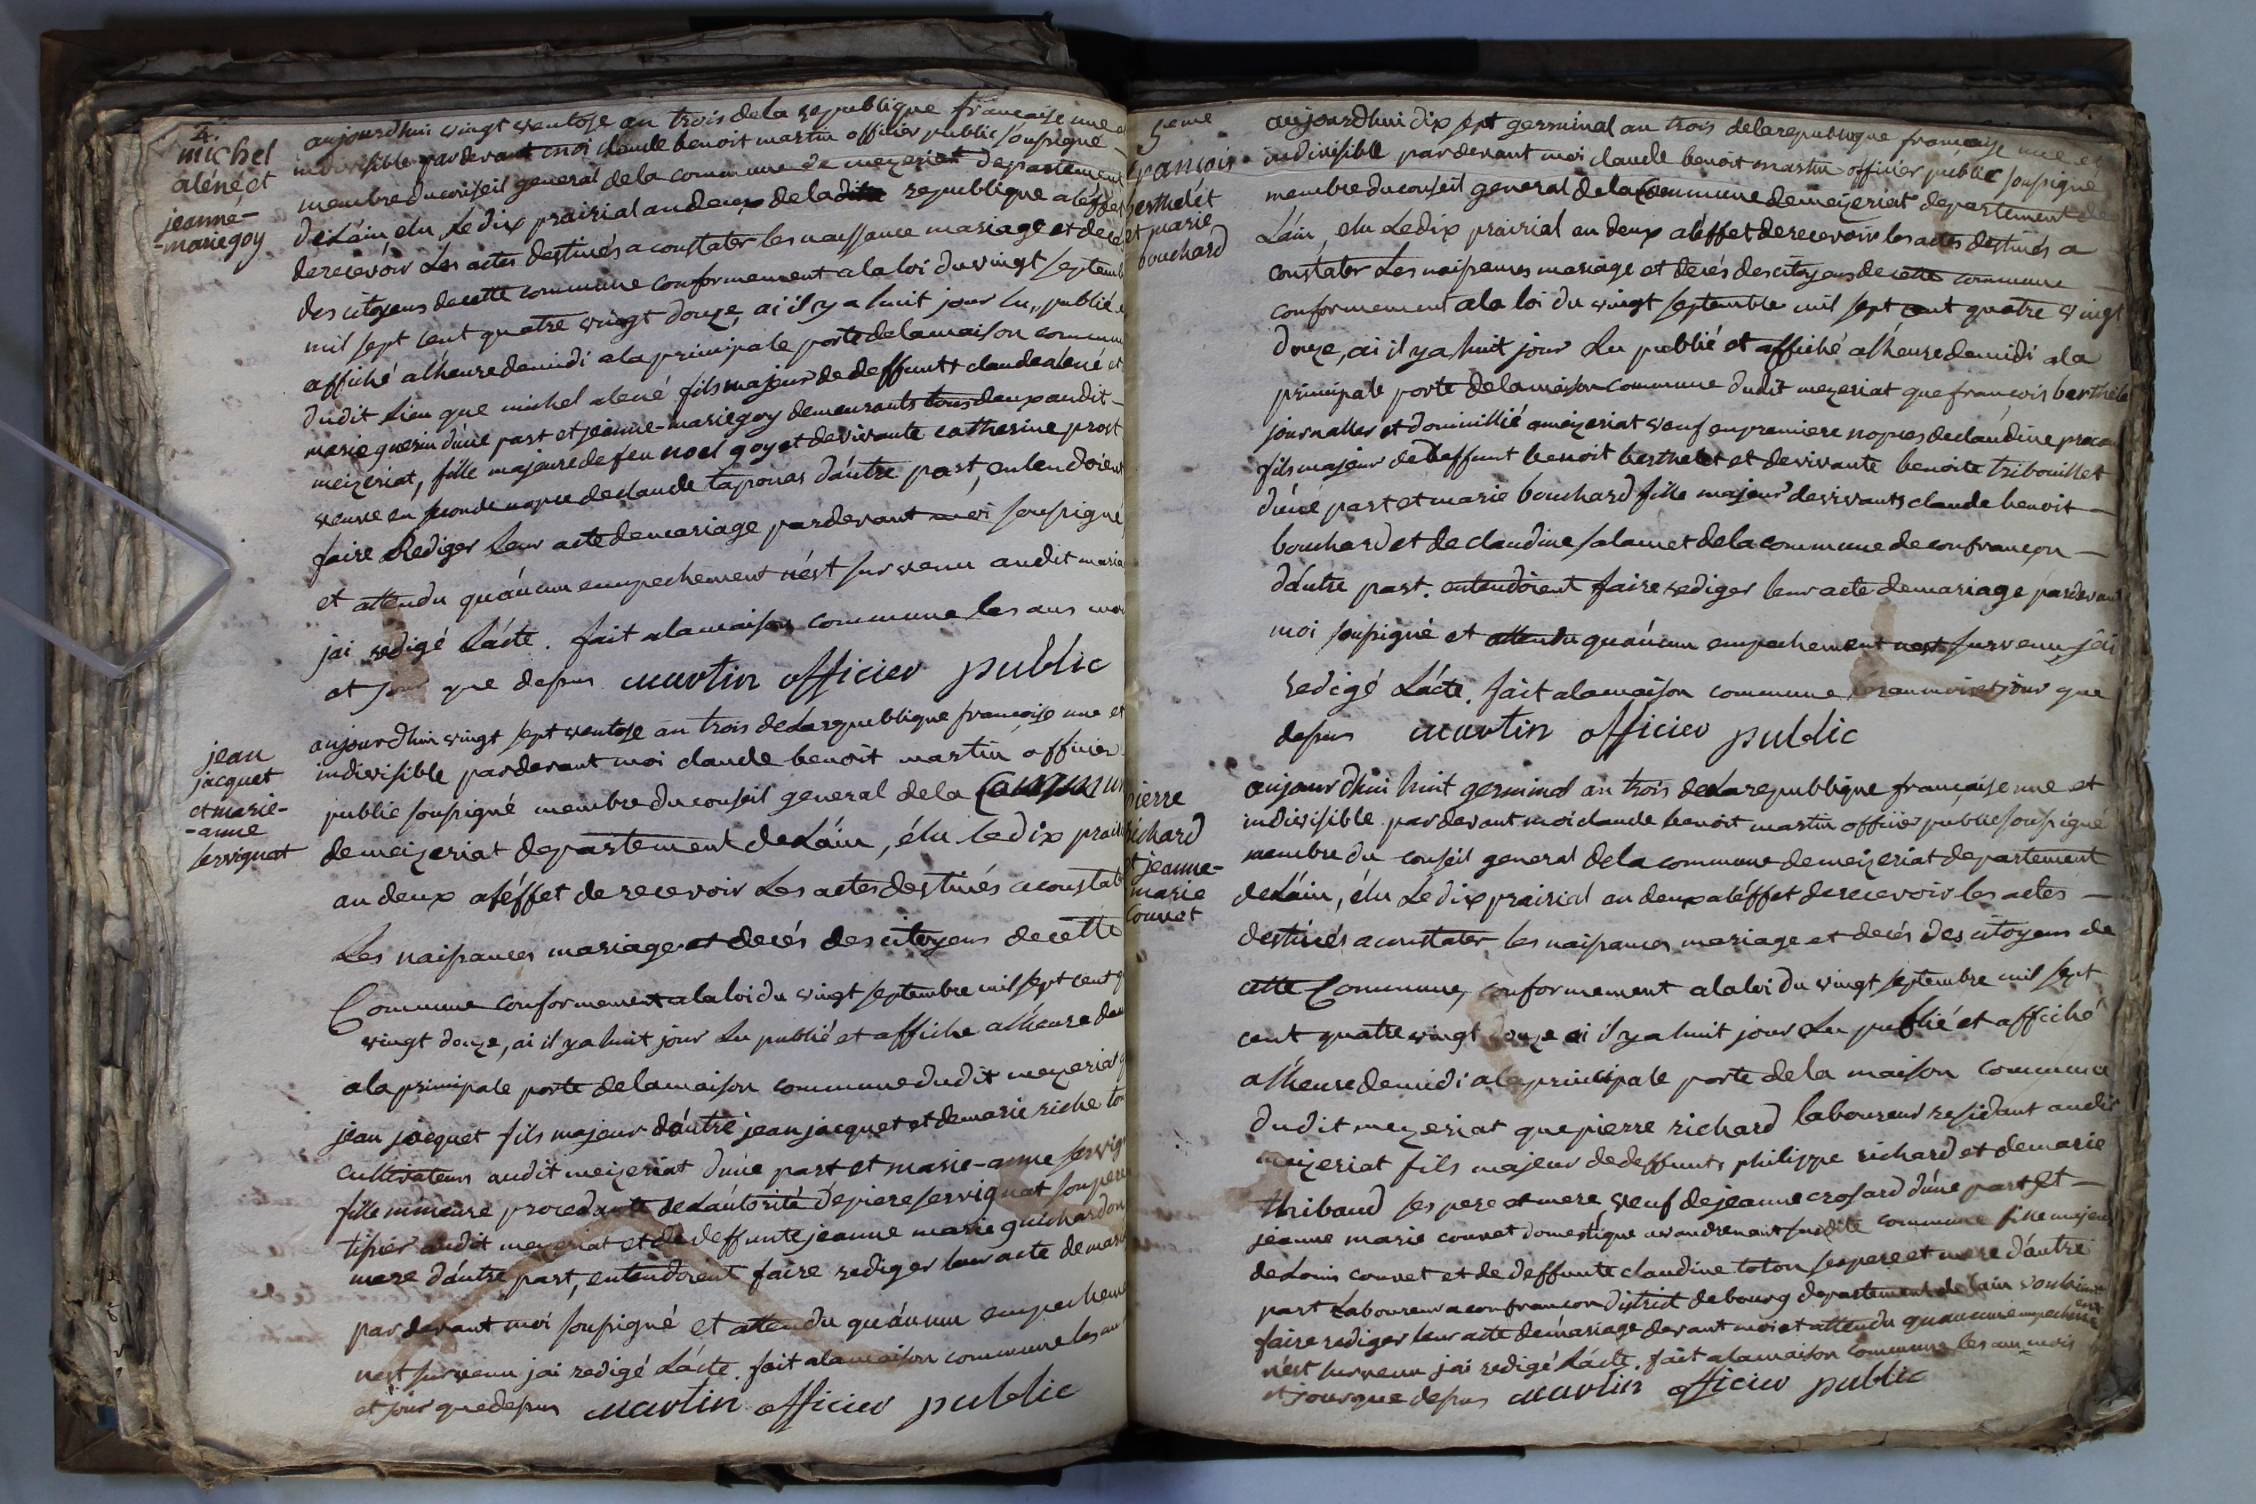 4.
michel
aléné et
jeanne-
-marie goy
aujourdhui vingt ventose an trois dela republique francaise une et
indivisible pardevant moi claude benoit martin officier public soussigné
membre duconseil general dela commune de mezeriat departement
deLáin, elu Le dix prairial andeux deladite republique aléffet
derecevoir Les actes destinés a constater les naissance mariage et decé
des citoyens decette commune conformement alaloi duvingt septemb
mil sept cent quatre vingt douze, ai il y a huit jour lu, publié e
affiché alheure demidi ala principale porte delamaison commun
dudit Lieu que michel alené fils majeur de deffunt claude alené et
marie guerin dúne part et jeanne-marie goy demeurants tous deux audit
meizeriat, fille majeure de feu noel goy et devivante catherine prost
veuve en seconde nopce declaude taponas dáutre part, entendoient
faire Rediger Leur acte demariage pardevant moi soussigné
et attendu quáucun empechement nést survenu audit maria
jai redigé Lácte. fait alamaison commune les ans moi
et jour que dessus martin officier public
jean
jacquet
et marie-
-anne
servignat
aujourdhui vingt sept ventose an trois deLarepublique francoise une et
indivisible pardevant moi claude benoit martin officier
public soussigné membre duconseil general dela Commun
demeizeriat departement deLáin, élu Le dix prairi
an deux aléffet de recevoir Les actes destinés a constat
Les naissances mariage et decés des citoyens decette
Commune conformement alaloi du vingt septembre mil sept cent q
vingt douze, ai il ya huit jour Lu publié et affiche alheure dem
ala principale porte delamaison commune dudit mezeriat q
jean jacquet fils majeur dáutre jean jacquet et demarie riche to
cultivateurs audit meizeriat dúne part et marie-anne servig
fille mineure procedante deLáutorité de piere servignat son pere
tissier audit mezeriat et de deffunte jeanne marie guichardon
mere dáutre part, entendoient faire rediger leur acte de mari
par devant moi soussigné et attendu quáucun empecheme
nest survenu jai redigé Lácte. fait alamaison commune les an
et jour que dessus martin officier public
5eme
francois
berthelét
et marie
bouchard
aujourdhui dix sept germinal an trois delarepublique francaise une et
indivisible pardevant moi claude benoit martin officier public soussigné
membre duconseil general dela Commune demeizeriat departement de
Láin, elu Ledix prairial an deux aléffet de recevoir les actes destinés a
constater Les naissances mariage et decés descitoyens decette commune
conformement ala loi du vingt septembre mil sept cent quatre vingt
douze, ai il y a huit jour Lu publié et affiché alheure demidi ala
principale porte delamaison commune dudit mezeriat que francois berthele
journallier et domicillié amezeriat veuf en premiere nopces declaudine
fils majeur de deffunt benoit berthelet et de vivante benoite tribouillet
dúne part et marie bouchard fille majeur devivants claude benoit
bouchard et de claudine salamet dela commune deconfrançon
dáutre part. entendoient faire rediger leur acte demariage pardevant
moi soussigné et attendu quáucun empechement nest survenu jái
redigé Lácte. fait alamaison commune, les an mois et jour que
dessus martin officier public
pierre
richard
et jeanne-
marie
couvet
aujourdhui huit germinal an trois deLarepublique française une et
indivisible pardevant moi claude benoit martin officier public soussigné
membre du conseil general dela commune demeizeriat departement
deLáin, élu Le dix prairial an deux aléffet de recevoir les actes
destinés a constater les naissances mariage et decés des citoyens de
cette Commune, conformement alaloi du vingt septembre mil sept
cent quatre vingt douze ai il y a huit jour Lu publié et affiché
alheure demidi ala principale porte dela maison commune
dudit mezeriat que pierre richard laboureur residant audit
meizeriat fils majeur dedeffunts philippe richard et demarie
thibaud ses pere et mere, veuf de jeanne crosard dúne part et
jeanne marie couvet domestique susdite commune fille majeu
deLouis couvet et de deffunte claudine toton ses pere et mere dáutre
part Laboureur a confrancon district de bourg departement de Lain vouloient
faire rediger leur acte démariage devant moi et attendu quaucun empechement
nést survenu jai redigé Lácte. fait alamaison commune les an mois
et jour que dessus martin officier public